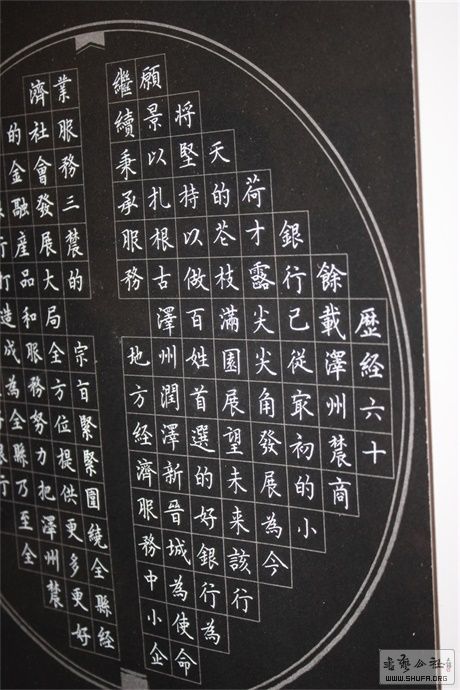 歷経六十
餘載澤州農商
銀行已從冣初的小
荷才露尖尖角發展為今
天的芲枝滿園展望未来該行
将堅持以做百姓首選的好銀行為
願景以扎根古澤州潤澤新晉城為使命
繼續秉承服務地方経濟服務中小企
業服務三農的宗旨緊緊圍繞全縣経
濟社會發展大局全方位提供更多更好
的金融産品和服務努力把澤州農
行打造成為全縣乃至全
WWW.SHUFA.ORG